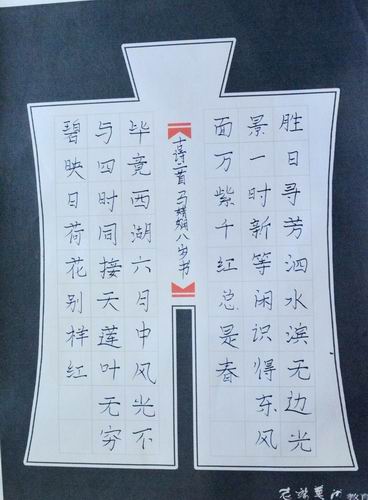 胜日寻芳泗水滨无边光
景一时新等闲识得东风
面万紫千红总是春
诗二首 马 八岁书
毕竟西湖六月中风光不
与四时同接天莲叶无穷
碧映日荷花别样红